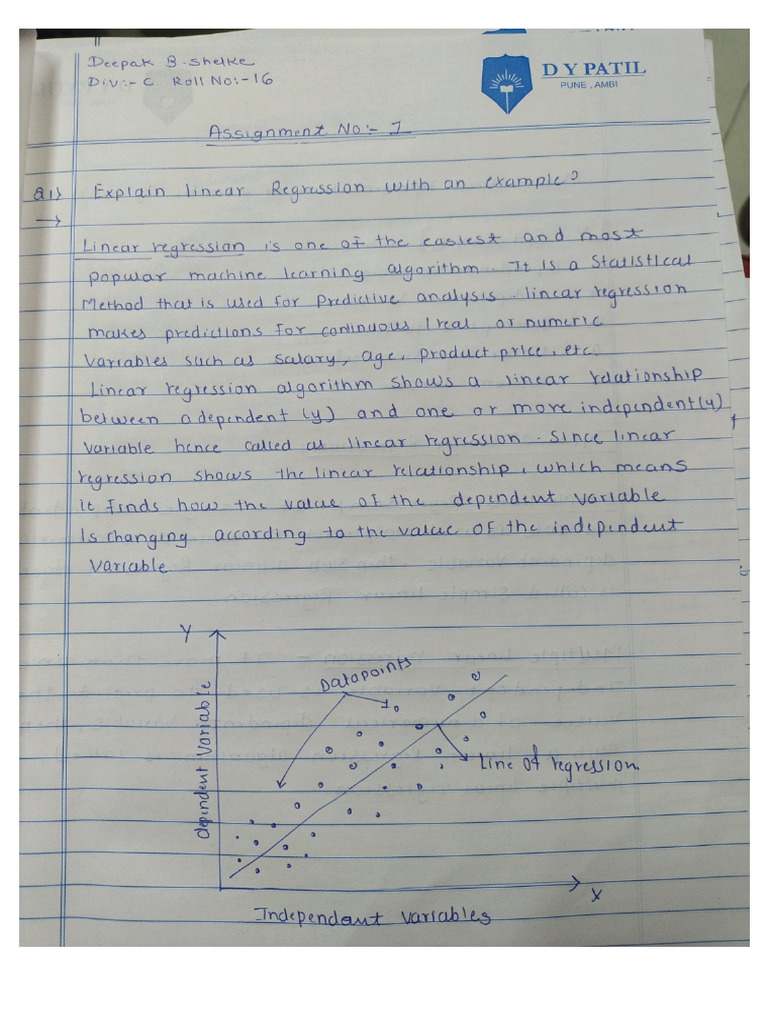 Deepak B. Shelke
Div:- C Roll No:- 16
D Y PATIL
PUNE, AMBI
Assignment No:- 1
Q1) Explain linear Regression with an example?
→
Linear regression is one of the easiest and most
popular machine learning algorithm. It is a Statistical
Method that is used for predictive analysis. linear regression
makes predictions for continuous / real or numeric
variables such as salary, age, product price, etc.
Linear regression algorithm shows a linear relationship
between a dependent (y) and one or more independent (y)
variable hence called as linear regression. Since linear
regression shows the linear relationship, which means
it finds how the value of the dependent variable
is changing according to the value of the independent
variable.
Y
Datapoints
dependent Variable
Line of regression.
X
Independent variables